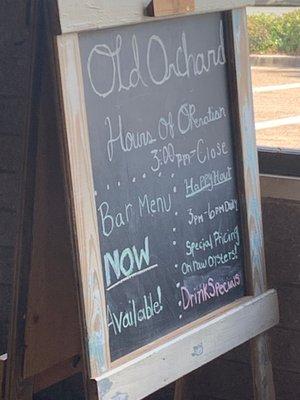 Old Orchard
Hours of Operation
3:00pm-Close
Bar Menu
NOW
Available!
Happy Hour
3pm-6pm Daily
Special Pricing
on raw Oysters!
Drink Specials